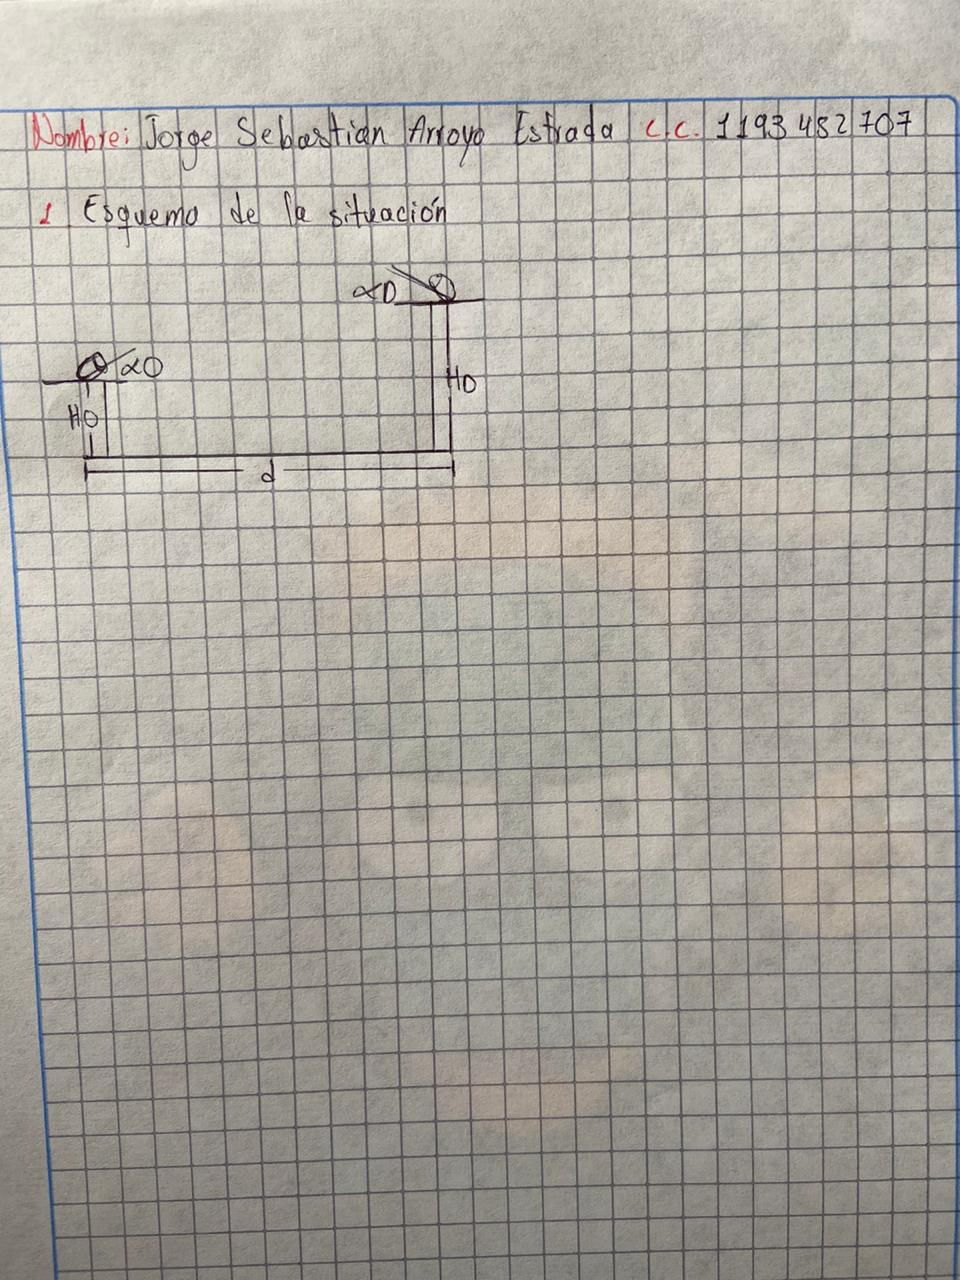 Nombre: Jorge Sebastian Arroyo Estrada c.c. 1193 482 707
1 Esquema de la situación
αD
αO
HD
HO
d